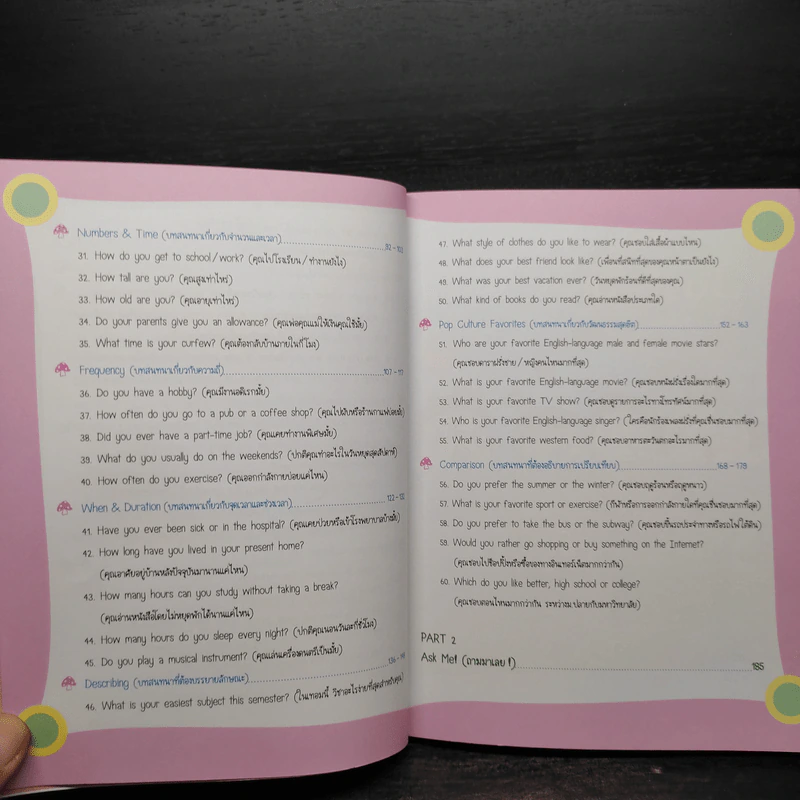 Numbers & Time (บทสนทนาเกี่ยวกับจำนวนและเวลา)
31. How do you get to school/work? (คุณไปโรงเรียน / ทำงานยังไง)
32. How tall are you? (คุณสูงเท่าไหร่)
33. How old are you? (คุณอายุเท่าไหร่)
34. Do your parents give you an allowance? (คุณพ่อคุณแม่ให้เงินคุณใช้มั้ย)
35. What time is your curfew? (คุณต้องกลับบ้านภายในกี่โมง)
Frequency (บทสนทนาเกี่ยวกับความถี่)
36. Do you have a hobby? (คุณมีงานอดิเรกมั้ย)
37. How often do you go to a pub or a coffee shop? (คุณไปผับหรือร้านกาแฟบ่อยมั้ย)
38. Did you ever have a part-time job? (คุณเคยทำงานพิเศษมั้ย)
39. What do you usually do on the weekends? (ปกติคุณทำอะไรในวันหยุดสุดสัปดาห์)
40. How often do you exercise? (คุณออกกำลังกายบ่อยแค่ไหน)
When & Duration (บทสนทนาเกี่ยวกับจุดเวลาและช่วงเวลา)
41. Have you ever been sick or in the hospital? (คุณเคยป่วยหรือเข้าโรงพยาบาลบ้างมั้ย)
42. How long have you lived in your present home?
(คุณอาศัยอยู่บ้านหลังปัจจุบันมานานแค่ไหน)
43. How many hours can you study without taking a break?
(คุณอ่านหนังสือโดยไม่หยุดพักได้นานแค่ไหน)
44. How many hours do you sleep every night? (ปกติคุณนอนวันละกี่ชั่วโมง)
45. Do you play a musical instrument? (คุณเล่นเครื่องดนตรีเป็นมั้ย)
Describing (บทสนทนาที่ต้องบรรยายลักษณะ)
46. What is your easiest subject this semester? (ในเทอมนี้ วิชาอะไรง่ายที่สุดสำหรับคุณ)
47. What style of clothes do you like to wear? (คุณชอบใส่เสื้อผ้าแบบไหน)
48. What does your best friend look like? (เพื่อนที่สนิทที่สุดของคุณหน้าตาเป็นยังไง)
49. What was your best vacation ever? (วันหยุดพักร้อนที่ดีที่สุดของคุณ)
50. What kind of books do you read? (คุณอ่านหนังสือประเภทใด)
Pop Culture Favorites (บทสนทนาเกี่ยวกับวัฒนธรรมสุดฮิต) 152 - 163
51. Who are your favorite English-language male and female movie stars?
(คุณชอบดาราฝรั่งชาย / หญิงคนไหนมากที่สุด)
52. What is your favorite English-language movie? (คุณชอบหนังฝรั่งเรื่องใดมากที่สุด)
53. What is your favorite TV show? (คุณชอบดูรายการอะไรทางโทรทัศน์มากที่สุด)
54. Who is your favorite English-language singer? (ใครคือนักร้องเพลงฝรั่งที่คุณชื่นชอบมากที่สุด)
55. What is your favorite western food? (คุณชอบอาหารตะวันตกอะไรมากที่สุด)
Comparison (บทสนทนาที่ต้องอธิบายการเปรียบเทียบ) 168 - 178
56. Do you prefer the summer or the winter? (คุณชอบฤดูร้อนหรือฤดูหนาว)
57. What is your favorite sport or exercise? (กีฬาหรือการออกกำลังกายใดที่คุณชื่นชอบมากที่สุด)
58. Do you prefer to take the bus or the subway? (คุณชอบขึ้นรถประจำทางหรือรถไฟใต้ดิน)
59. Would you rather go shopping or buy something on the Internet?
(คุณชอบไปช้อปปิ้งหรือซื้อของทางอินเทอร์เน็ตมากกว่ากัน)
60. Which do you like better, high school or college?
(คุณชอบตอนไหนมากกว่ากัน ระหว่างม.ปลายกับมหาวิทยาลัย)
PART 2
Ask Me! (ถามมาเลย !) 185